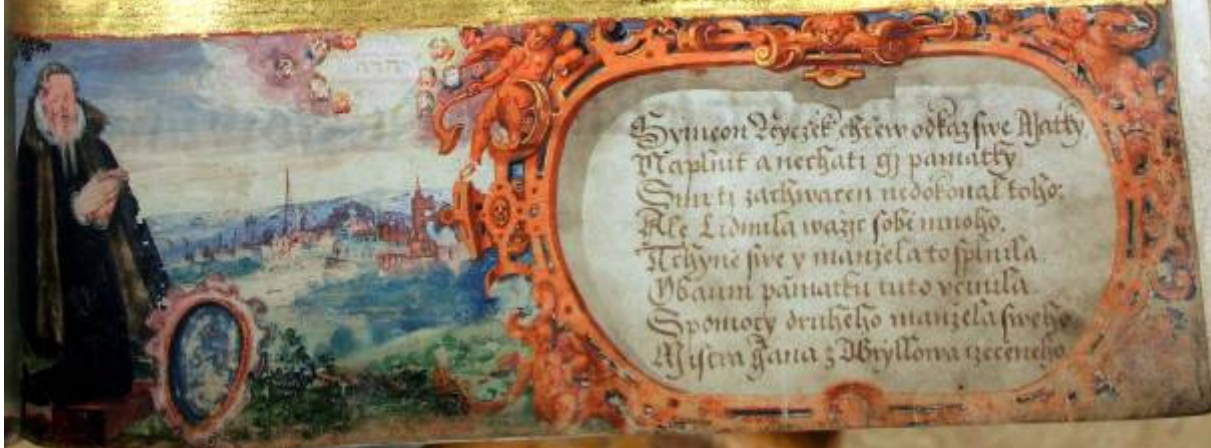 יהוה
Symeon Ryczek chtěw odkaz swe Matky
Naplnit a nechati gj pamatky
Smrti zachwacen nedokonal toho:
Ale Lidmila wažic sobě mnoho,
Tchyně swe y manžela to splnila
Obaum pamatku tuto včinila
Spomocy druheho manžela sweho
Mistra Jana z rzeceneho